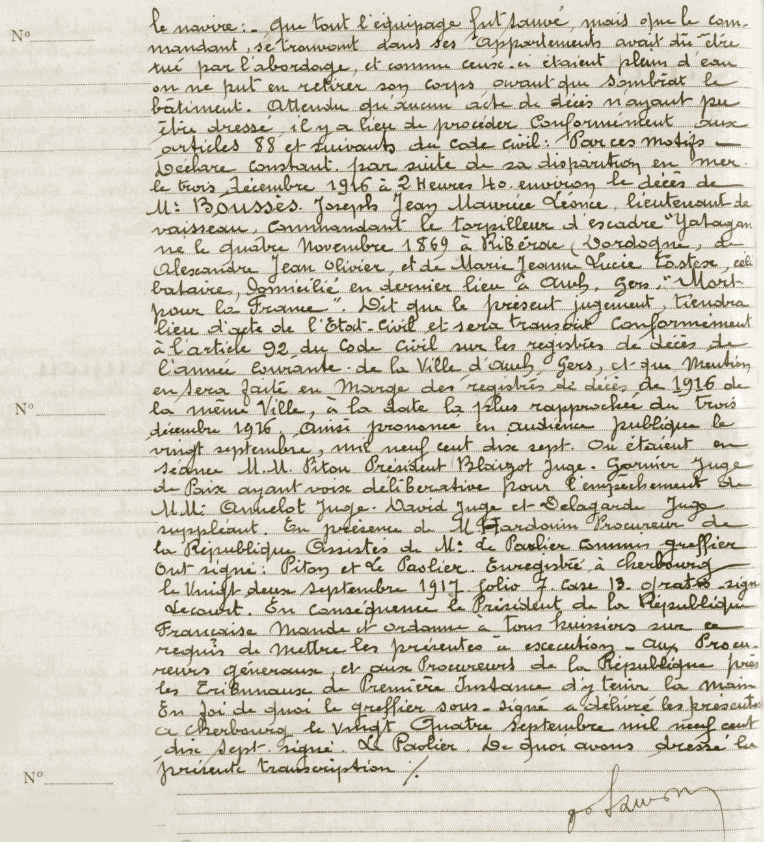 le navire :- que tout l'équipage fut sauvé, mais que le com-
Nº
mandant, se trouvant dans ses appartements avait dû être
tué par l'abordage, et comme ceux-ci étaient pleins d'eau
on ne put en retirer son corps avant que sombrât le
bâtiment. Attendu qu'aucun acte de décès n'ayant pu
être dressé, il y a lieu de procéder Conformément aux
articles 88 et suivants du Code civil : Par ces motifs -
Déclare constant par suite de sa disparition en mer
le trois décembre 1916 à 2 Heures 40 environ le décès de
Mr BOUSSÈS Joseph Jean Maurice Léonce, lieutenant de
vaisseau, commandant le torpilleur d'escadre "Yatagan
né le quatre Novembre 1869 à Ribérac (Dordogne, de
Alexandre Jean Olivier, et de Marie Jeanne Lucie, céli
bataire, domicilié en dernier lieu à Auch, Gers. "Mort
pour la France". Dit que le présent jugement, tiendra
lieu d'acte de l'Etat-Civil et sera transcrit Conformément
à l'article 92 du Code Civil sur les registres de décès de
l'année courante de la Ville d'Auch, Gers, et que Mention
en sera faite en Marge des registres de décès de 1916 de
Nº
la même Ville, à la date la plus rapprochée du trois
décembre 1916. Ainsi prononcé en audience publique le
vingt septembre, mil neuf cent dix sept. Où étaient en
séance M.M. Piton Président Blaizot Juge. Garnier Juge
de Paix ayant voix délibérative pour l'empêchement de
MM. Amelot Juge. David Juge et Delagarde Juge
suppléant. En présence de M. Hardouin Procureur de
la République Assistés de Mr Le Paslier commis greffier
Ont signé : Piton et Le Paslier. Enregistré à Cherbourg
le Vingt deux septembre 1917 folio 7. case 13. gratis signé
Lecourt. En conséquence le Président de la République
Française Mande et ordonne à tous huissiers sur ce
requis de mettre les présentes à exécution - aux Procu-
reurs généraux, et aux Procureurs de la République près
les Tribunaux de Première Instance d'y tenir la main
En foi de quoi le greffier sous-signé a délivré les présentes
à Cherbourg le Vingt Quatre septembre mil neuf cent
dix sept. signé. Le Paslier. De quoi avons dressé la
Nº
présente transcription ./.